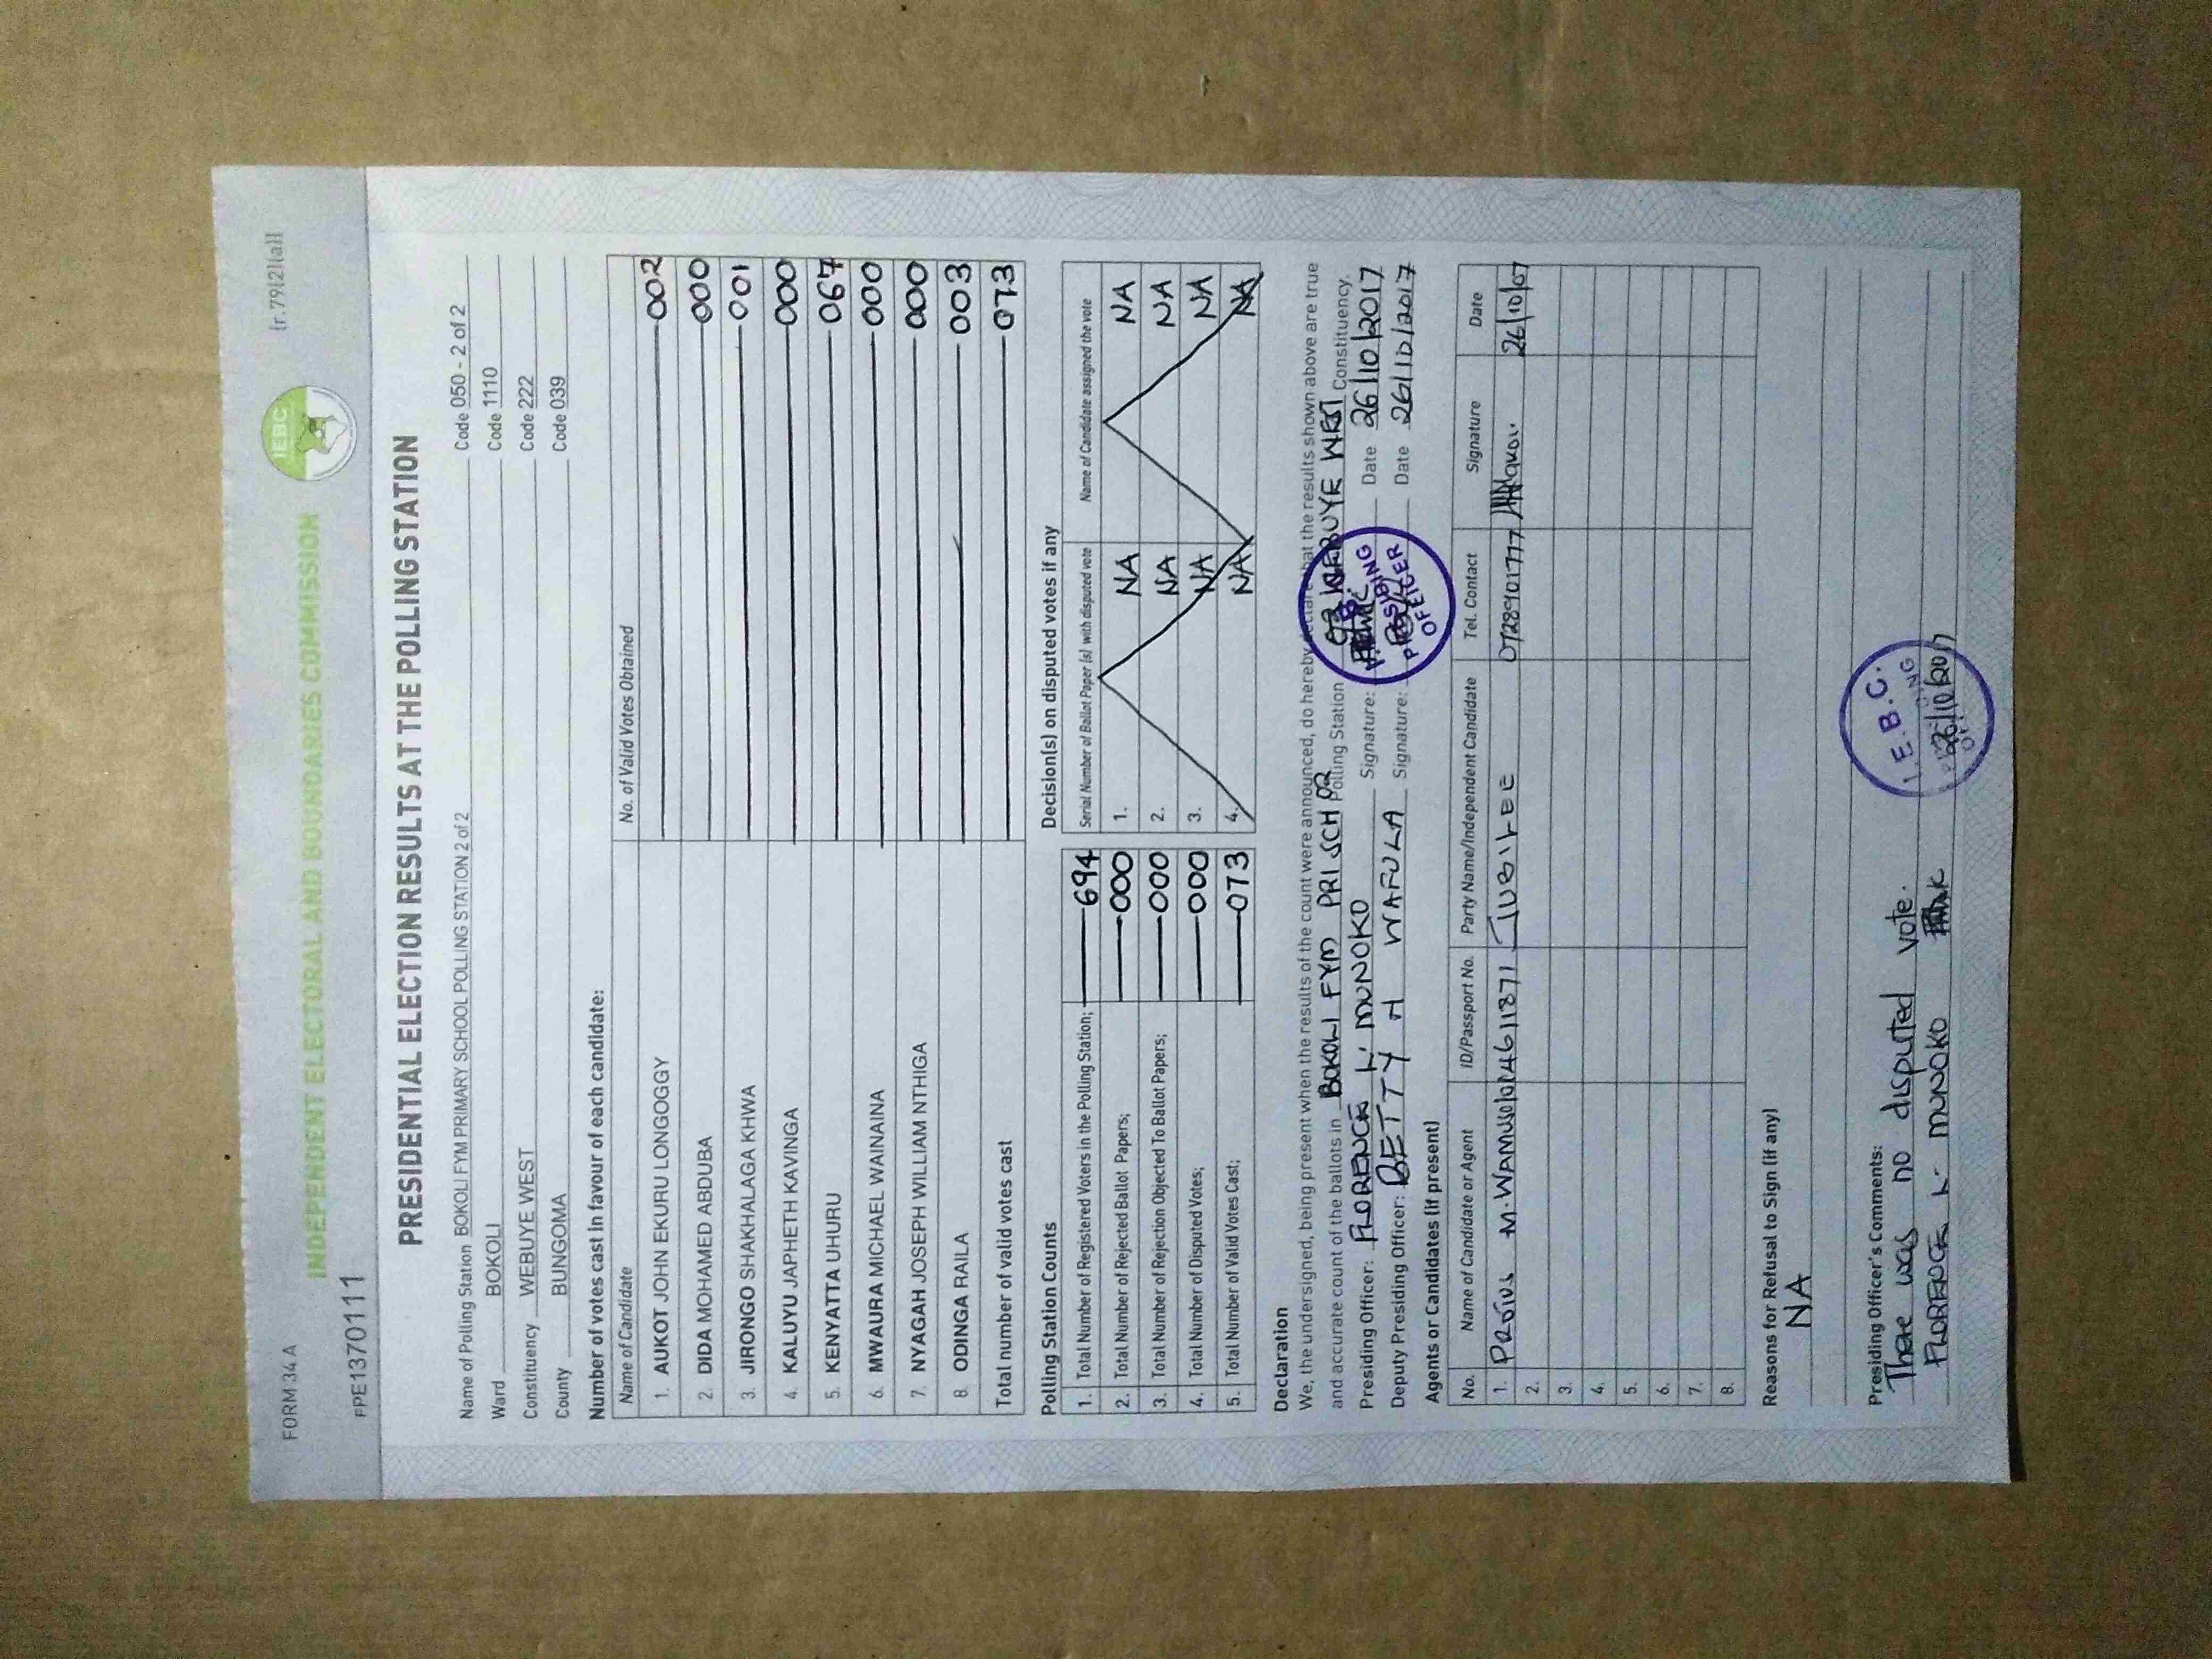 FORM 34 A
[r.79(2)(a)]
INDEPENDENT ELECTORAL AND BOUNDARIES COMMISSION
IEBC
PPE1370111
PRESIDENTIAL ELECTION RESULTS AT THE POLLING STATION
Name of Polling Station BOKOLI FYM PRIMARY SCHOOL POLLING STATION 2 of 2 Code 050 - 2 of 2
Ward BOKOLI Code 1110
Constituency WEBUYE WEST Code 222
County BUNGOMA Code 039
Number of votes cast in favour of each candidate:
Name of Candidate No. of Valid Votes Obtained
1. AUKOT JOHN EKURU LONGOGGY 002
2. DIDA MOHAMED ABDUBA 000
3. JIRONGO SHAKHALAGA KHWA 001
4. KALUYU JAPHETH KAVINGA 000
5. KENYATTA UHURU 067
6. MWAURA MICHAEL WAINAINA 000
7. NYAGAH JOSEPH WILLIAM NTHIGA 000
8. ODINGA RAILA 003
Total number of valid votes cast 073
Polling Station Counts
1. Total Number of Registered Voters in the Polling Station; 694
2. Total Number of Rejected Ballot Papers; 000
3. Total Number of Rejection Objected To Ballot Papers; 000
4. Total Number of Disputed Votes; 000
5. Total Number of Valid Votes Cast; 073
Decision(s) on disputed votes if any
Serial Number of Ballot Paper (s) with disputed vote Name of Candidate assigned the vote
1. NA NA
2. NA NA
3. NA NA
4. NA NA
Declaration
We, the undersigned, being present when the results of the count were announced, do hereby declare that the results shown above are true
and accurate count of the ballots in BOKOLI FYM PRI SCH 02 Polling Station WEBUYE WEST Constituency.
Presiding Officer: FLORENCE L. MUNOKO Signature: Date 26/10/2017
Deputy Presiding Officer: BETTY N WAFULA Signature: Date 26/10/2017
PRESIDING OFFICER
Agents or Candidates (if present)
No. Name of Candidate or Agent ID/Passport No. Party Name/Independent Candidate Tel. Contact Signature Date
1. M. JUBILEE 26/10/07
2.
3.
4.
5.
6.
7.
8.
Reasons for Refusal to Sign (if any)
NA
Presiding Officer's Comments:
There was no disputed vote.
FLORENCE L. MUNOKO 26/10/2017
I.E.B.C.